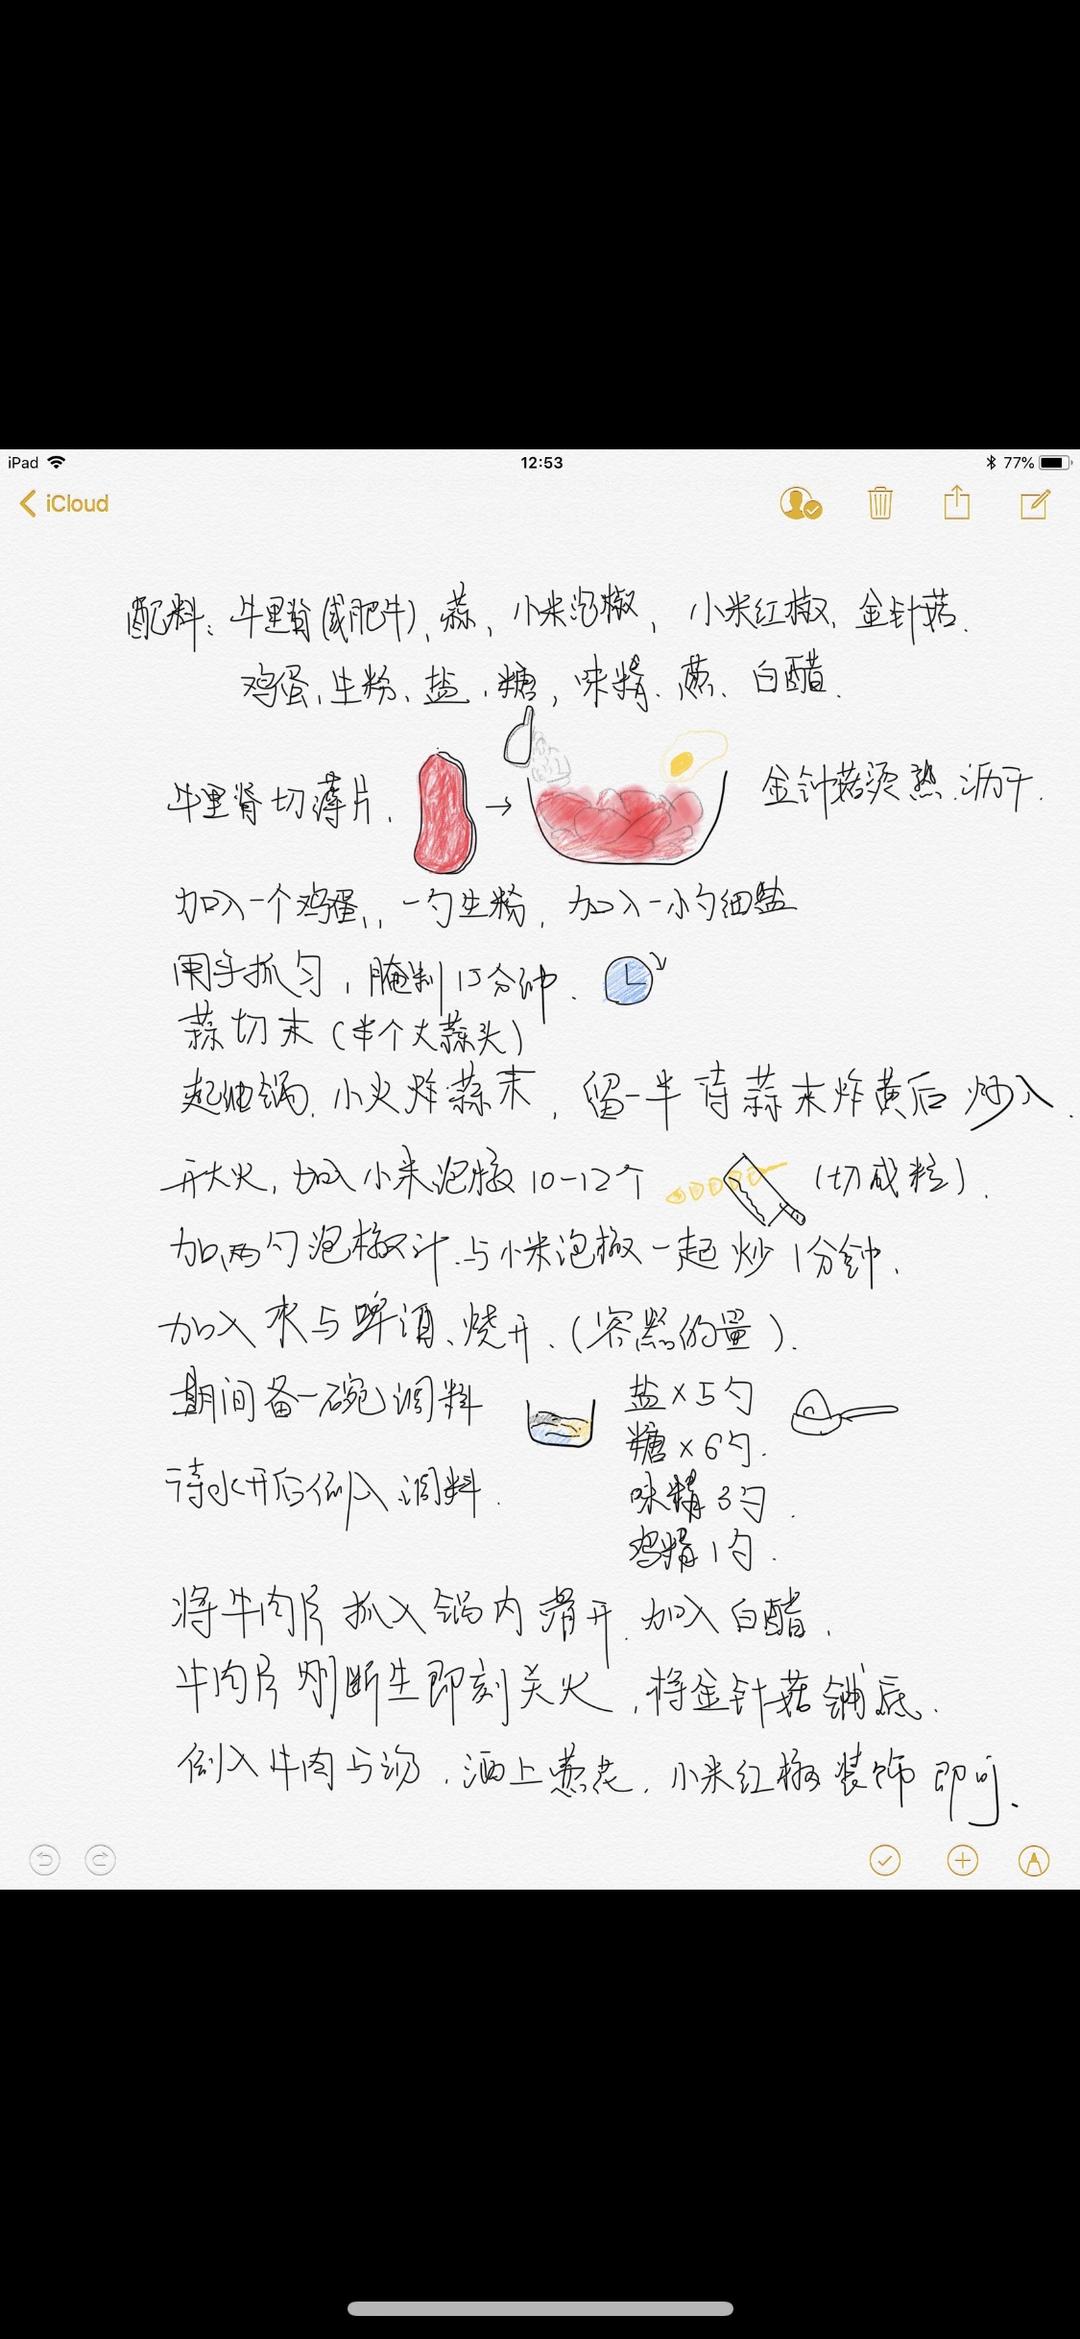 iPad
12:53
77%
iCloud
配料：牛里脊(或肥牛)、蒜、小米泡椒、小米红椒、金针菇.
鸡蛋、生粉、盐、糖、味精、葱、白醋.
牛里脊切薄片.
金针菇烫熟.沥干.
加入一个鸡蛋,,一勺生粉,加入一小勺细盐
用手抓匀,腌制15分钟.
蒜切末(半个大蒜头)
起油锅.小火炸蒜末,留一半待蒜末炸黄后炒入.
开大火,加入小米泡椒10-12个 (切成粒).
加两勺泡椒汁.与小米泡椒一起炒1分钟.
加入水与啤酒、烧开.(容器的量).
期间备一碗调料
盐×5勺
糖×6勺.
待水开后倒入调料.
味精3勺.
鸡精1勺.
将牛肉片抓入锅内滑开.加入白醋.
牛肉片刚断生即刻关火,将金针菇铺底.
倒入牛肉与汤.洒上葱花.小米红椒装饰即可.